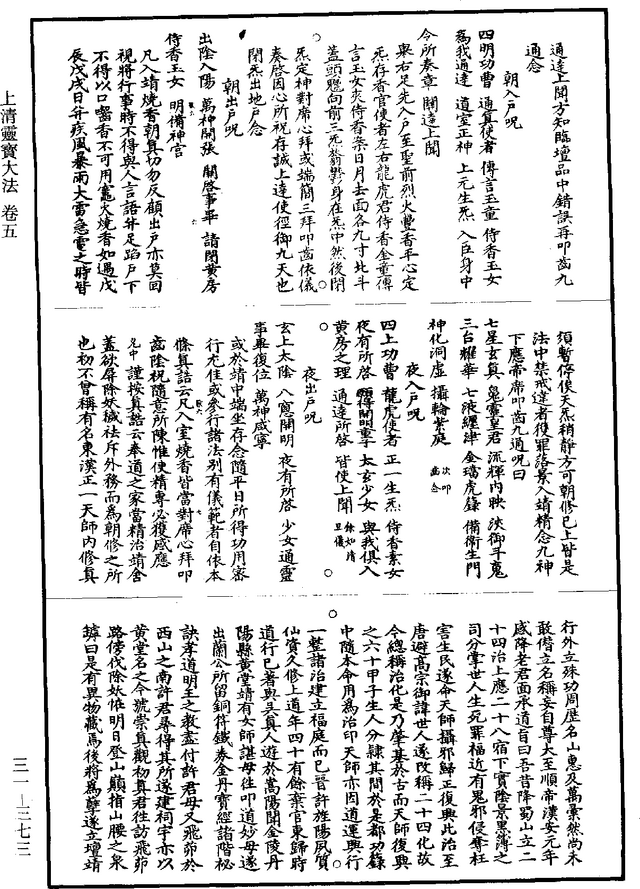 通達上聞方知臨壇品中錯誤再叩齒九
通念
朝入戶呪
四明功曹 通真使者 傳言玉童 侍香玉女
為我通達 道室正神 上元生炁 入臣身中
令所奏章 關達上聞
畢右足先入戶至聖前烈火豐香平心定
炁存香官使者左右龍虎君侍香金童傳
言玉女夾侍香案日月去面各九寸北斗
蓋頭魁向前三炁鬱鬱身在炁中然後閉
炁定神對席心拜或端簡三拜叩齒依儀
奏啓因心所祝存誠上達使徑御九天也
閉炁出地戶念
朝出戶呪
出陰入陽 萬神開張 關啓事畢 請閉黃房
侍香玉女 明備神宮
凡入靖燒香朝真切勿反顧出戶亦莫回
視將行事時不得與人言語并足踏戶下
不得以口嚙香不可用竈火燒香如遇戊
辰戊戌日并疾風暴雨大雷急電之時皆
須暫停俟天炁稍靜方可朝修已上皆是
法中禁戒違者獲罪落景入靖精念九神
下應帝席叩齒九通呪曰
七星玄真 鬼靈皇君 流輝內映 浹御斗寬
三台耀華 七液纏津 金璫虎籙 備衛生門
神化洞虛 攝輪紫庭
夜入戶呪
四上功曹 龍虎使者 正一生炁 侍香素女
夜有所啓 願得開明童子 太玄少女 與我俱入
黃房之理 通達所啓 皆使上聞
夜出戶呪
玄上太陰 八窻開明 夜有所啓 少女通靈
事畢復位 萬神咸寧
或於靖中端坐存念隨平日所得功用審
行无住或參行諸法別有儀範者自依本
條真誥云凡入室燒香皆當對席心拜叩
齒陰祝隨意所陳惟使精專必獲感應
謹按真誥云奉道之家當精治靖舍
蓋欲屏除妖祟祛斥外務而為朝修之所
也初不曾稱有名東漢正一天師內修真
行外立殊功周歷名山惠及萬彙然尚未
敢僭立名稱妄自尊大至順帝漢安元年
感降老君面承道旨曰吾昔降蜀山立二
十四治上應二十八宿下實陰景黑簿之
司分掌世人生死罪福近有鬼邪侵奪枉
害生民遂命天師攝邪歸正復興此治至
唐避高宗御諱世人遂改稱二十四化故
今總稱治化是乃肇基於古而天師復興
之六十甲子生人分隸其間於是都功籙
中隨本命用為治印天師亦因道運興行
一整諸治建立福庭而已晉許旌陽夙質
仙資久修上道年四十有餘棄官東歸時
道行已著與吳真人遊於嵩陽聞金陵丹
陽縣黃堂靖有女師諶母往叩道妙母遂
出蘭公所留銅符鐵券金丹寶經諸階祕
訣孝道明王之教盡付許君母又飛茆於
西山之南許君尋得其所遂建祠宇亦以
黃堂名之今號崇真觀初真君往訪飛茆
路傍伐除妖怪明日登山巔指山腰之泉
罅曰是有異物藏焉後將為孽遂立壇靖
上清靈寶大法 卷五
三一—三七三